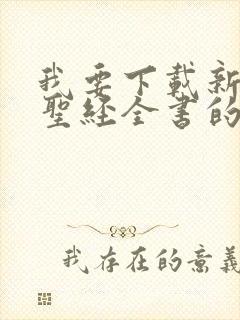 我要下載新
聖経全書的
我存在的意義